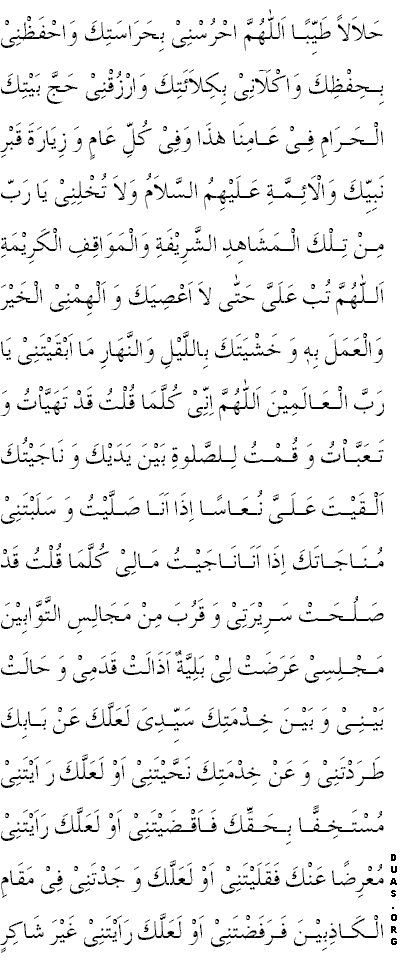 حَلَالاً طَيِّبًـا اَللّٰهُمَّ احْرُسْنِىْ بِحَرَاسَتِكَ وَاحْفَظْنِىْ
بِـحِفْظِكَ وَاكْلَآنِىْ بِكِلَائَتِكَ وَارْزُقْنِىْ حَجَّ بَيْتِكَ
الْـحَـرَامِ فِـىْ عَـامِنَا هٰذَا وَفِىْ كُلِّ عَامٍ وَ زِيَارَةَ قَبْرِ
نَبِيِّكَ وَالْاَئِـمَّـةِ عَـلَيْهِمُ السَّلَامُ وَلَا تُخْلِنِىْ يَا رَبِّ
مِـنْ تِـلْكَ الْـمَشَاهِدِ الشَّرِيْفَةِ وَالْمَوَاقِفِ الْكَرِيْمَةِ
اَلـلّٰهُمَّ تُبْ عَلَىَّ حَتّٰى لَا اَعْصِيَكَ وَ اَلْهِمْنِىْ الْخَيْرَ
وَالْعَمَلَ بِهٖ وَ خَشْيَتَكَ بِاللَّيْلِ وَالنَّهَارِ مَا اَبْقَيْتَنِىْ يَا
رَبَّ الْـعَـالَمِيْنَ اَللّٰهُمَّ اِنِّىْ كُلَّمَا قُلْتُ قَدْ تَهَيَّاْتُ وَ
تَـعَبَّـاْتُ وَ قُـمْـتُ لِـلصَّلٰوةِ بَيْنَ يَدَيْكَ وَ نَاجَيْتُكَ
اَلْـقَيْـتَ عَـلَـىَّ نُـعَـاسًـا اِذَا اَنَـا صَـلَّيْتُ وَ سَلَبْتَنِىْ
مُـنَـاجَـاتَكَ اِذَا اَنَـانَـاجَيْـتُ مَـالِىْ كُلَّمَا قُلْتُ قَدْ
صَـلُـحَـتْ سَـرِيْرَتِىْ وَ قَرُبَ مِنْ مَجَالِسِ التَّوَّابِيْنَ
مَـجْـلِسِىْ عَرَضَتْ لِىْ بَلِيَّةٌ اَذَالَتْ قَدَمِىْ وَ حَالَتْ
بَيْـنِـىْ وَ بَيْـنَ خِـدْمَتِكَ سَيِّـدِىْ لَعَلَّكَ عَنْ بَـابِكَ
طَـرَدْتَنِىْ وَ عَنْ خِدْمَتِكَ نَحَّيْتَنِىْ اَوْ لَعَلَّكَ رَ اَيْتَنِىْ
مُسْتَـخِـفًّـا بِـحَـقِّكَ فَـاَقْـضَيْتَنِىْ اَوْ لَعَلَّكَ رَاَيْتَنِىْ
مُعْرِضًا عَنْكَ فَقَلَيْتَنِىْ اَوْ لَعَلَّكَ وَ جَدْتَنِىْ فِىْ مَقَامِ
الْـكَـاذِبِيْـنَ فَـرَفَضْتَنِىْ اَوْ لَعَلَّكَ رَاَيْتَنِىْ غَيْرَ شَاكِرٍ
DUAS.ORG